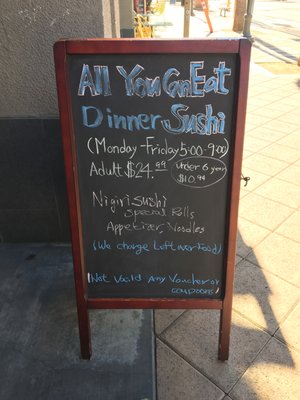 All You Can Eat
Dinner Sushi
(Monday-Friday 5:00-9:00)
Adult $24.99
Under 6 year
$10.99
Nigiri sushi
Special Rolls
Appetizer, Noodles
(We charge Left over Food)
(Not Vaild Any Voucher or
coupons)